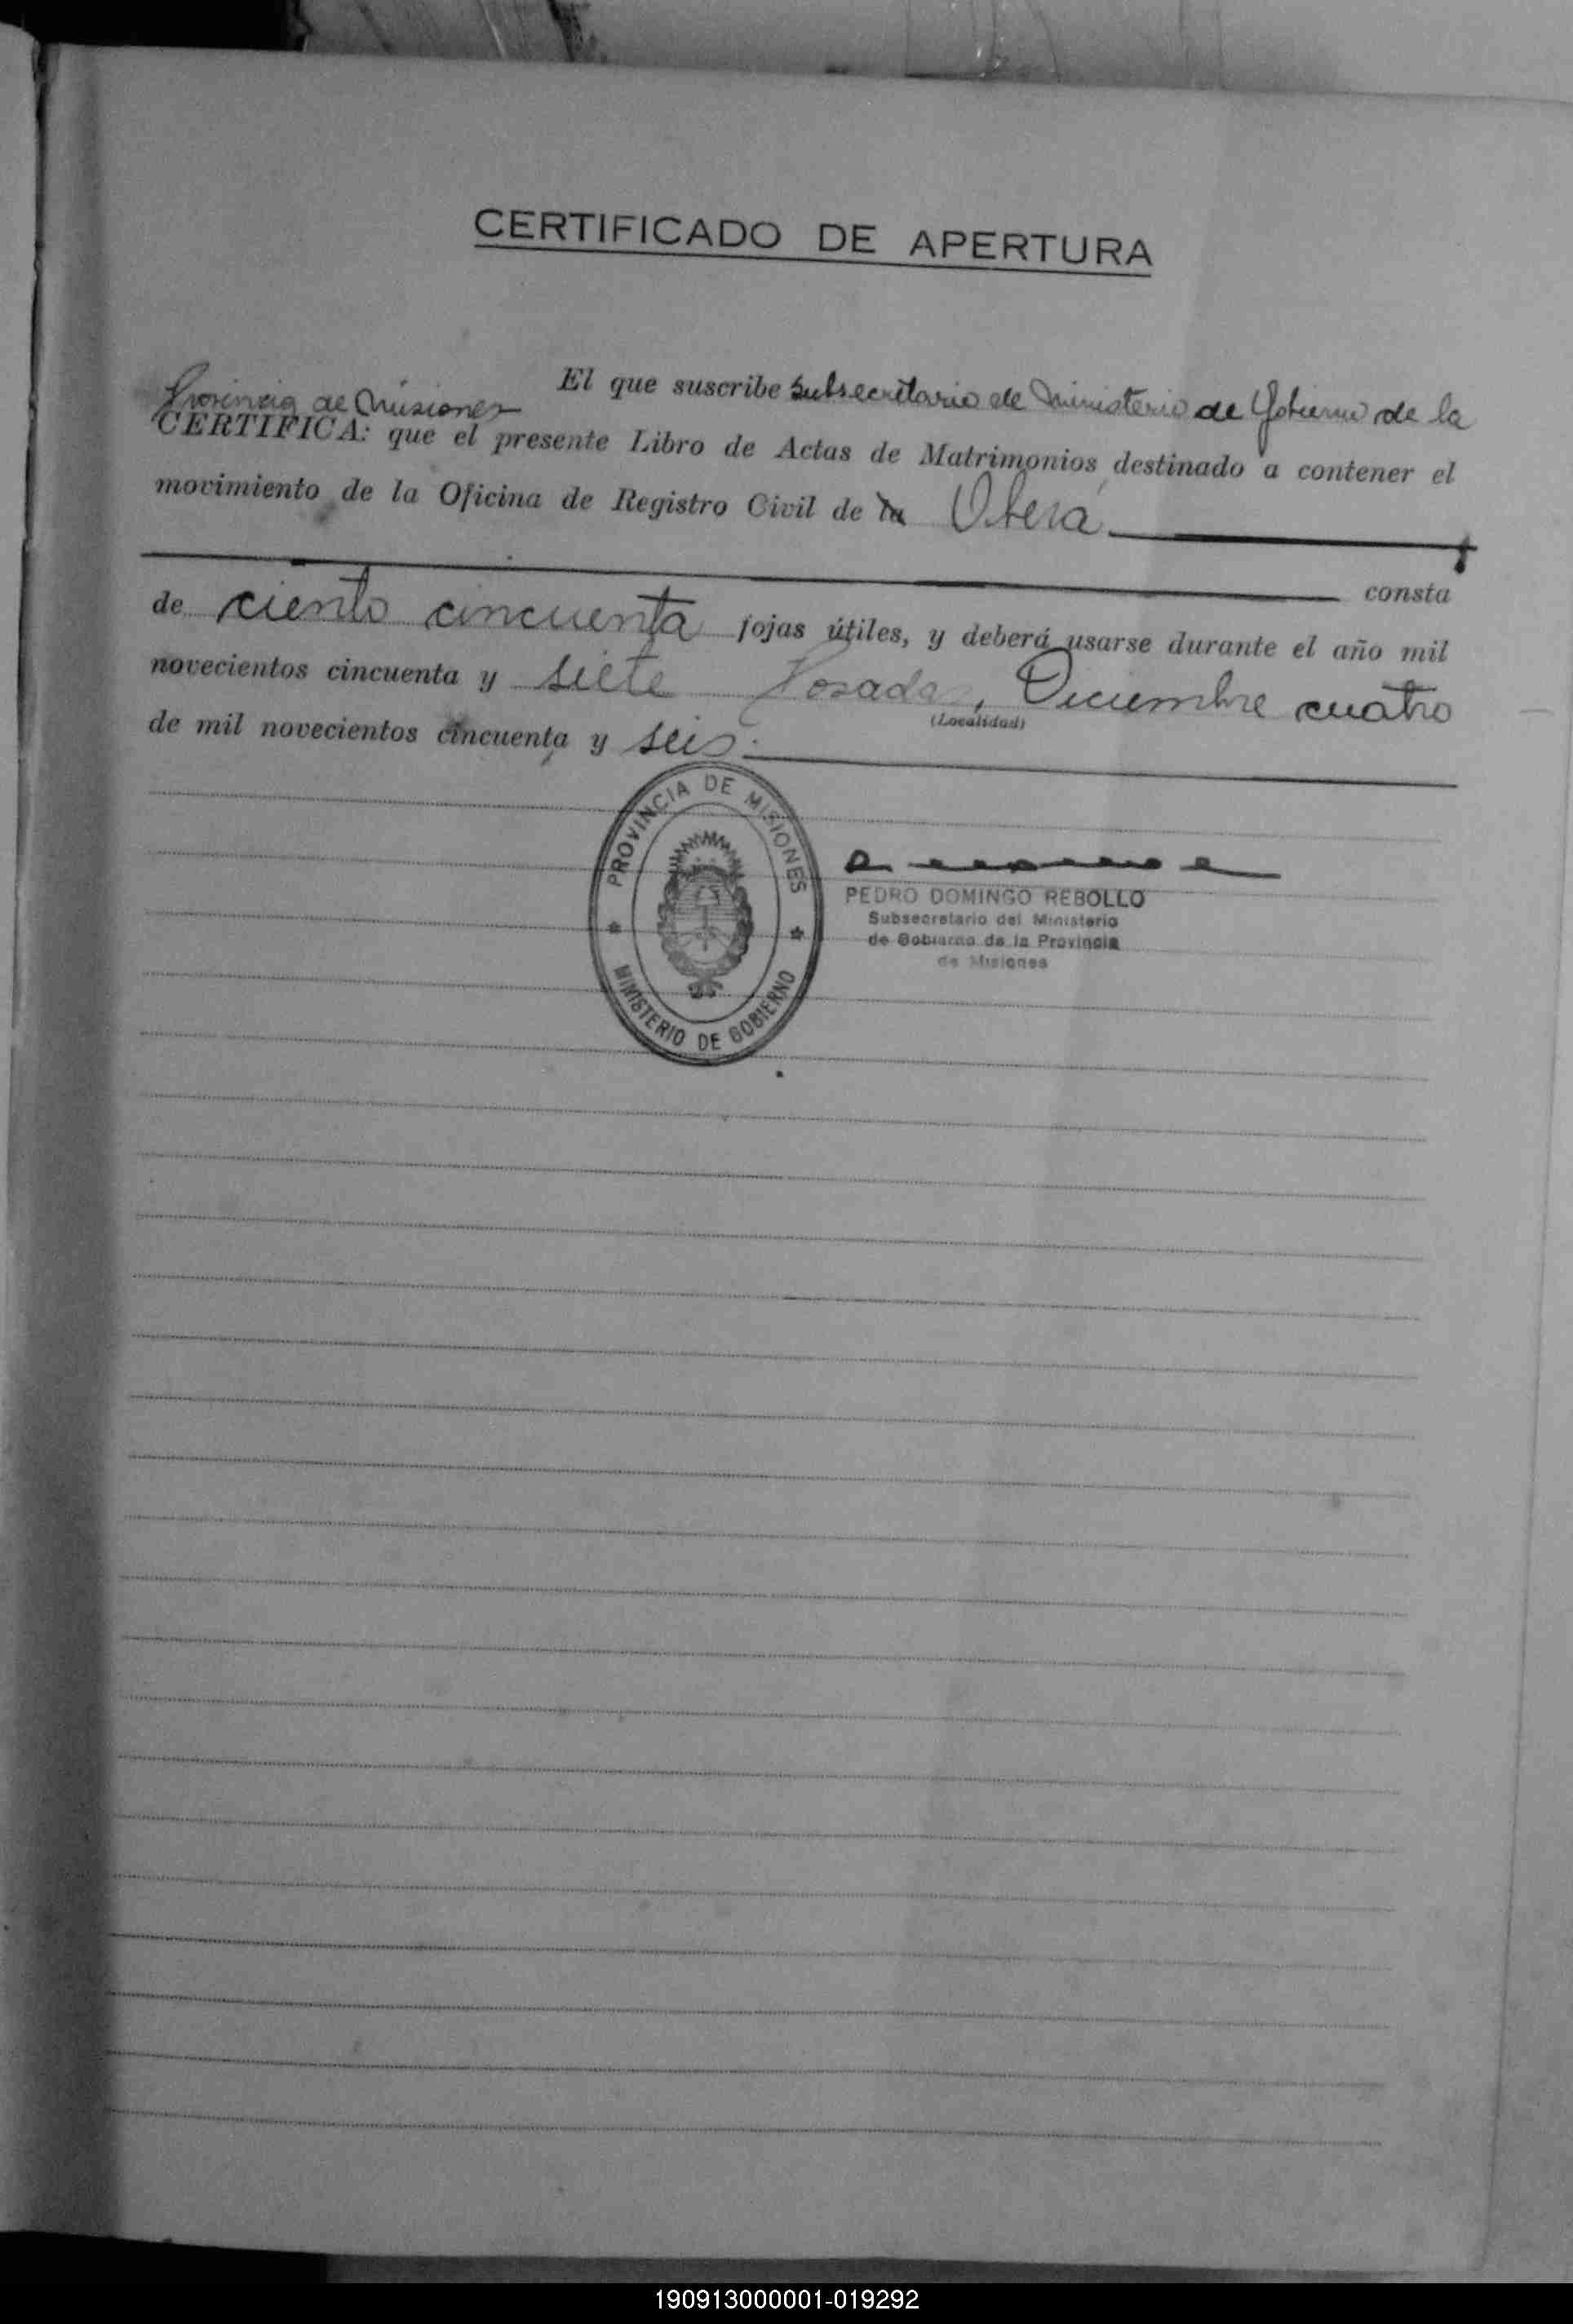 CERTIFICADO DE APERTURA
El que suscribe Subsecretario de Ministerio de Gobierno de la
Provincia de Misiones
CERTIFICA: que el presente Libro de Actas de Matrimonios destinado a contener el
movimiento de la Oficina de Registro Civil de la Oberá
consta
de ciento cincuenta fojas útiles, y deberá usarse durante el año mil
novecientos cincuenta y siete Posadas, Diciembre cuatro
(Localidad)
de mil novecientos cincuenta y seis.
PROVINCIA DE MISIONES
MINISTERIO DE GOBIERNO
PEDRO DOMINGO REBOLLO
Subsecretario del Ministerio
de Gobierno de la Provincia
de Misiones
190913000001-019292